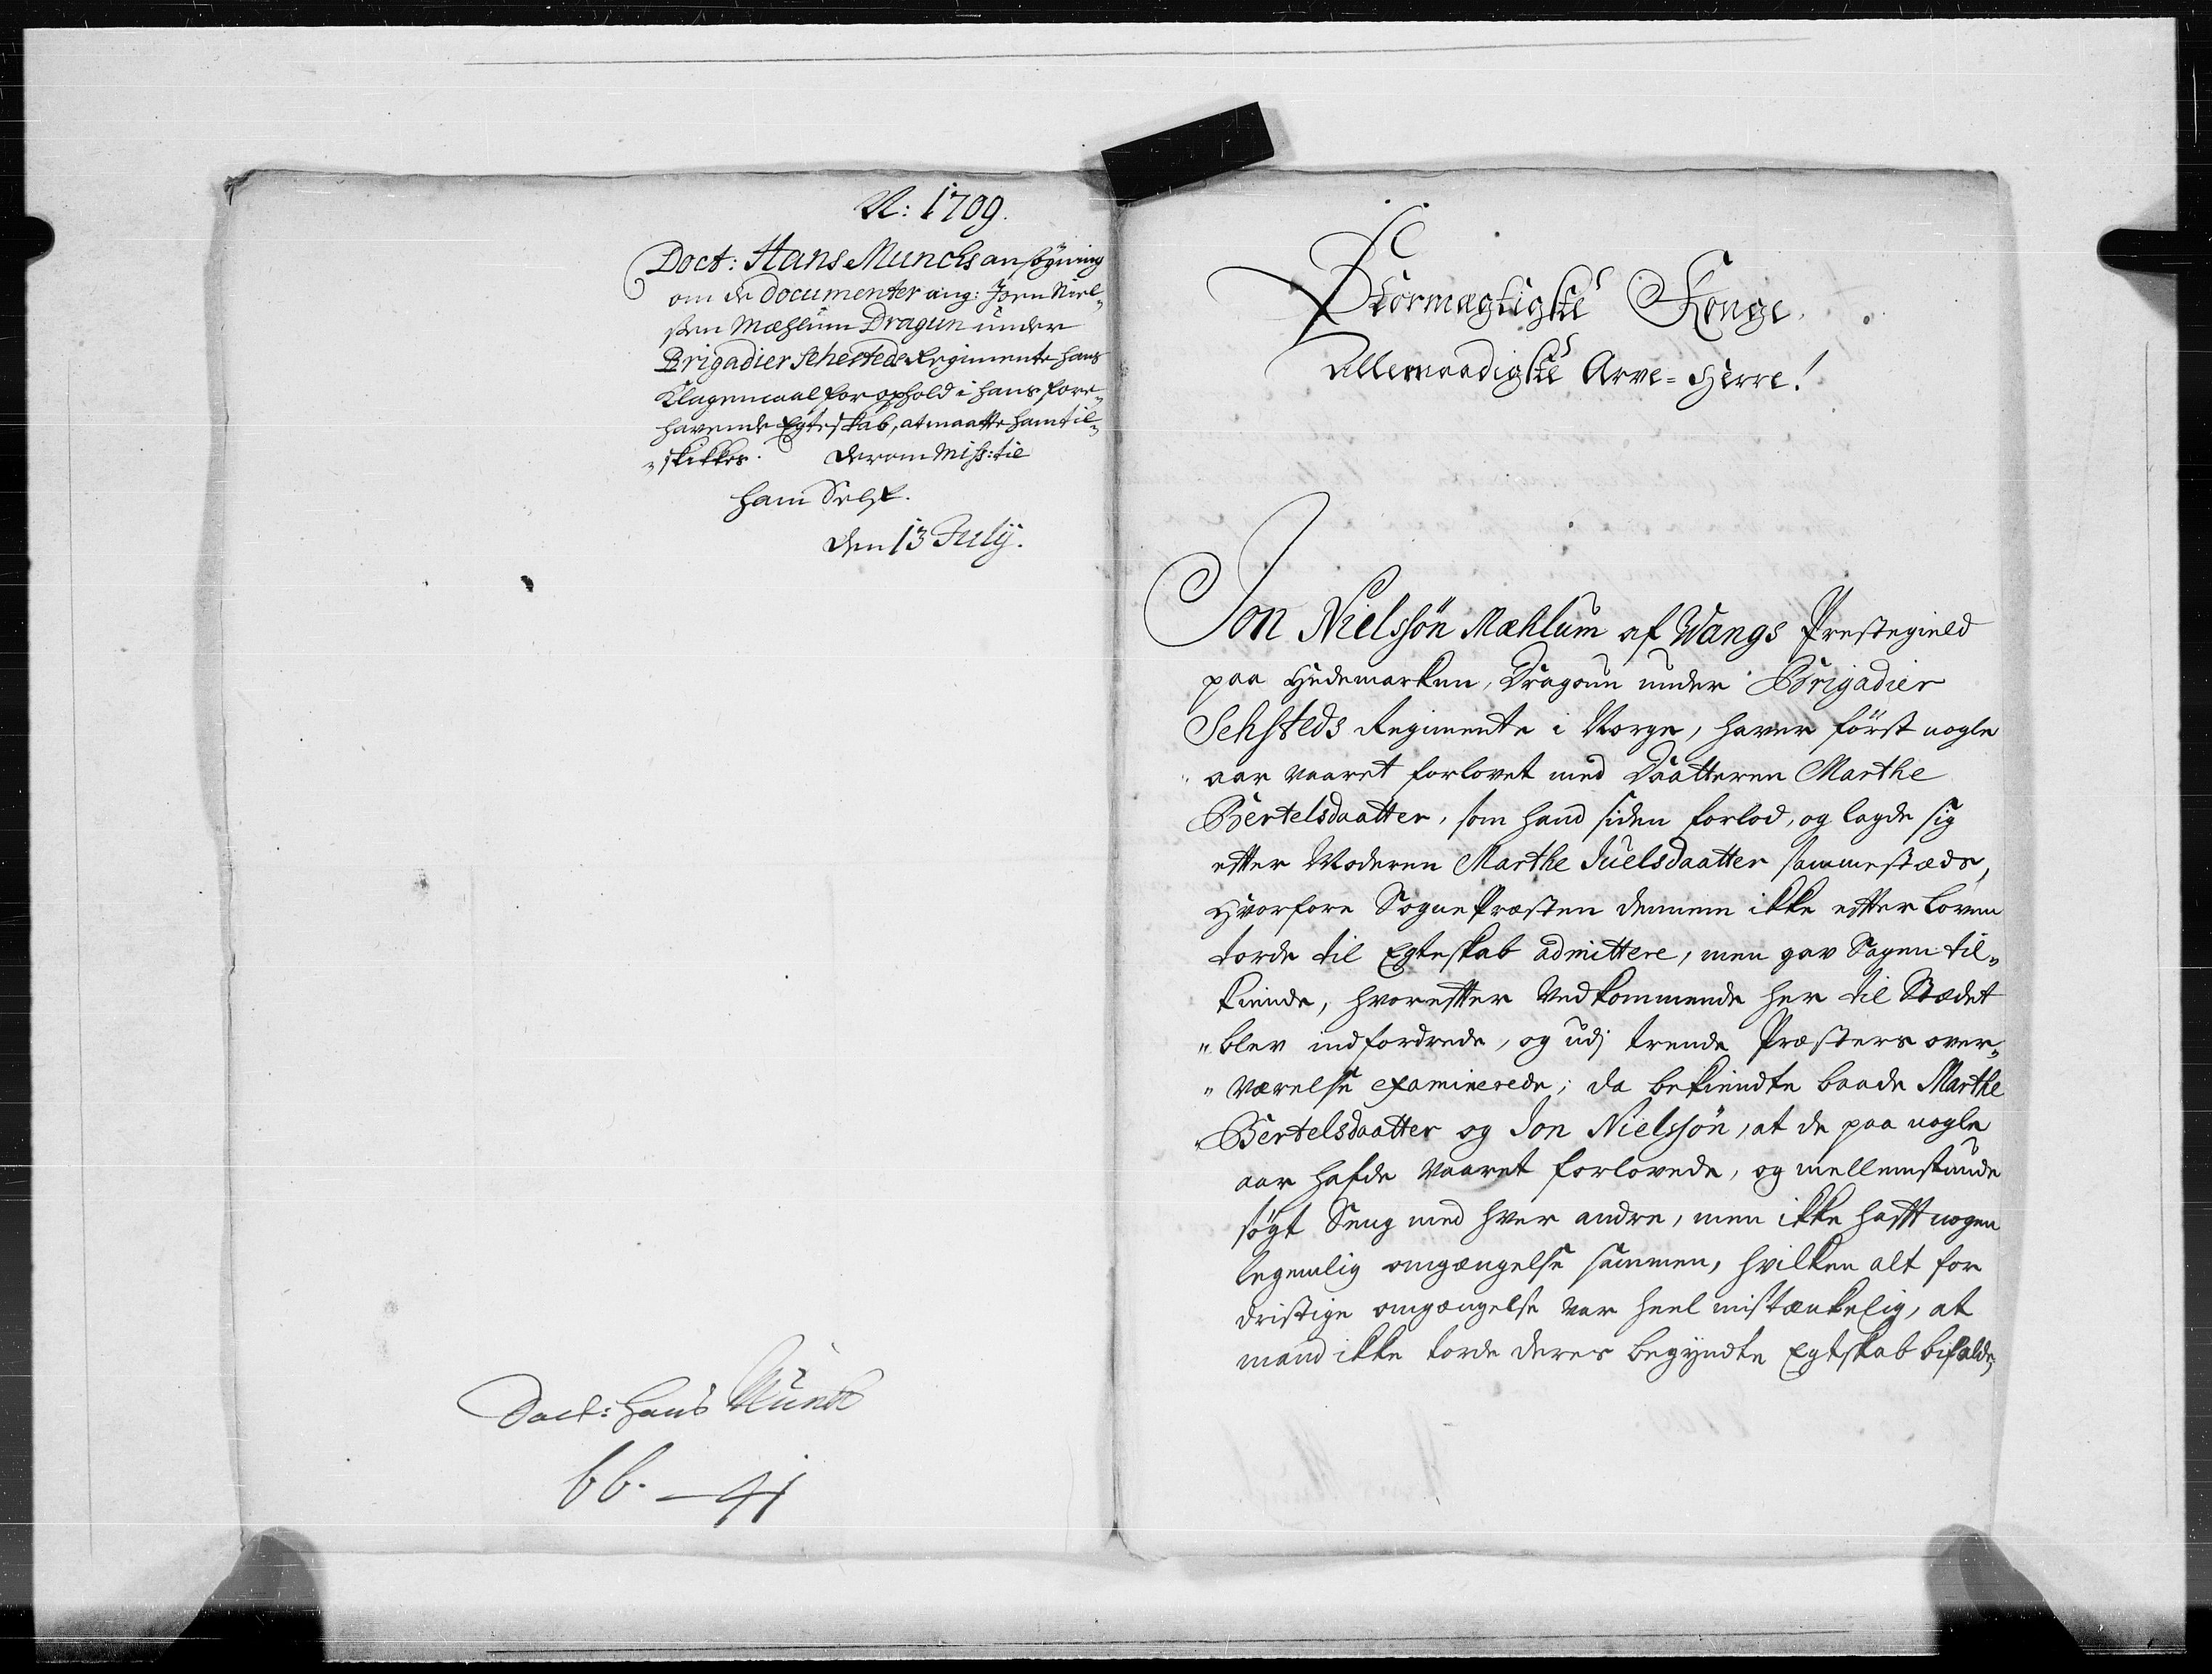 A: 1709.
Doct: Hans Munchs ansøgning
om de Documenter ang: Joen Niel„
ßen Mæhlum Dragun under
Brigadier Sehesteds Regimente hans
Klagemaal for ophold i hans fore„
havende Egteskab, at maatte ham til„
„skikkes. Derom Miss: til
ham Self.
den 13 July.
Doct: Hans Munk
66. — 41
Stormægtigste Konge.
Allernaadigste Arve-Herre!
Jon Nielssön Mæhlum af Wangs Prestegield
paa Hedemarken, Dragoun under Brigadier
Sehsteds Regimente i Norge, haver först nogle
aar vaaret forlovet med Daatteren Marthe
Bertelsdaatter, som hand siden forlod, og lagde sig
efter Moderen Marthe Juelsdaatter sammestæds,
Hvorfore SognePræsten dennem ikke efter Loven
torde til Egteskab admittere, men gav Sagen til„
kiende, hvorefter Vedkommende her til Stædet
„blev indfordrede, og udj trende Præsters over„
„værelse examinerede; da bekiendte baade Marthe
„Bertelsdaatter og Jon Nielssön, at de paa nogle
aar hafde vaaret forlovede, og mellemstunde
søgt Seng med hver andre, men ikke hafft nogen
legemlig omgængelse sammen, hvilken alt for
dristige omgængelse var heel mistænkelig, at
mand ikke torde deres begyndte Egtskab bifalde,